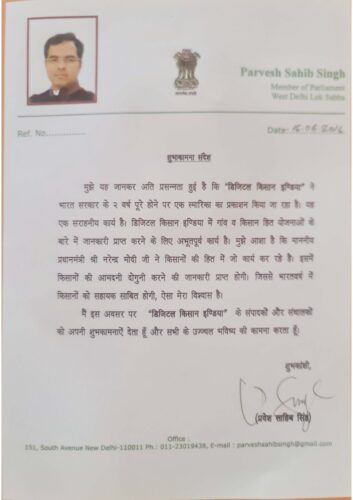 Parvesh Sahib Singh
Member of Parliament
West Delhi Lok Sabha
Ref. No..............
Date:
शुभकामना संदेश
मुझे यह जानकर अति प्रसन्नता हुई है कि "डिजिटल किसान इण्डिया" ने
भारत सरकार के २ वर्ष पूरे होने पर एक स्मारिका का प्रकाशन किया जा रहा है। यह
एक सराहनीय कार्य है। डिजिटल किसान इण्डिया में गांव व किसान हित योजनाओं के
बारे में जानकारी प्राप्त करने के लिए अभूतपूर्व कार्य है। मुझे आशा है कि माननीय
प्रधानमंत्री श्री नरेन्द्र मोदी जी ने किसानों की हित में जो कार्य कर रहे है। इसमें
किसानों की आमदनी दोगुनी करने की जानकारी प्राप्त होगी। जिससे भारतवर्ष में
किसानों को सहायक साबित होगी, ऐसा मेरा विश्वास है।
मैं इस अवसर पर "डिजिटल किसान इण्डिया" के संपादकों और संचालकों
को अपनी शुभकामनाऐं देता हूँ और सभी के उज्ज्वल भविष्य की कामना करता हूँ।
शुभकांक्षी,
(प्रवेश साहिब सिंह)
Office :
151, South Avenue New Delhi-110011 Ph.: 011-23019438, E-mail : parveshsahibsingh@gmail.com